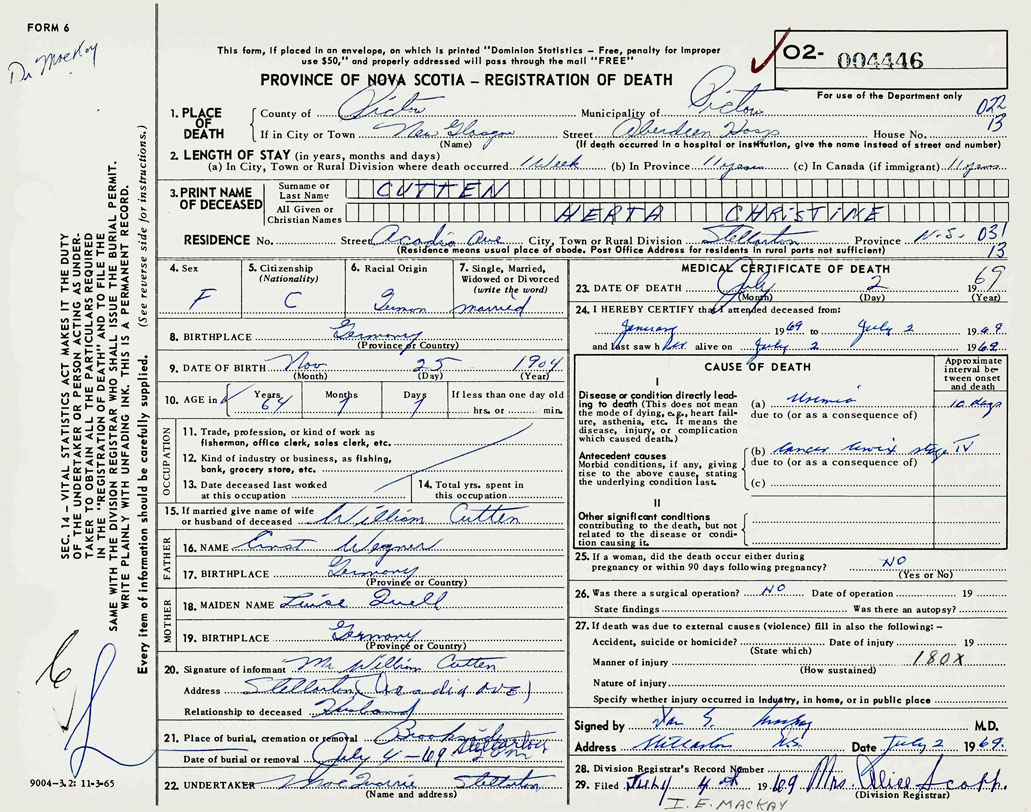 FORM 6
Dr MacKay
This form, if placed in an envelope, on which is printed "Dominion Statistics – Free, penalty for improper
use $50," and properly addressed will pass through the mail "FREE"
O2- 004446
For use of the Department only
PROVINCE OF NOVA SCOTIA – REGISTRATION OF DEATH
1. PLACE OF DEATH County of Pictou Municipality of Pictou 022
If in City or Town New Glasgow Street Aberdeen Hosp House No. 13
(Name) (If death occurred in a hospital or institution, give the name instead of street and number)
2. LENGTH OF STAY (in years, months and days)
(a) In City, Town or Rural Division where death occurred 1 Week (b) In Province 11 years (c) In Canada (if immigrant) 11 years
3. PRINT NAME OF DECEASED Surname or Last Name CUTTEN
All Given or Christian Names HERTA CHRISTINE
RESIDENCE No. Street Acadia Ave City, Town or Rural Division Stellarton Province N.S. 031
(Residence means usual place of abode. Post Office Address for residents in rural parts not sufficient) 13
4. Sex F
5. Citizenship (Nationality) C
6. Racial Origin German
7. Single, Married, Widowed or Divorced (write the word) married
8. BIRTHPLACE Germany
(Province or Country)
9. DATE OF BIRTH Nov 25 1904
(Month) (Day) (Year)
10. AGE in Years 64 Months 7 Days 7 If less than one day old
hrs. or min.
OCCUPATION
11. Trade, profession, or kind of work as
fisherman, office clerk, sales clerk, etc.
12. Kind of industry or business, as fishing,
bank, grocery store, etc.
13. Date deceased last worked
at this occupation
14. Total yrs. spent in
this occupation
15. If married give name of wife
or husband of deceased William Cutten
FATHER
16. NAME Ernst Wegner
17. BIRTHPLACE Germany
(Province or Country)
MOTHER
18. MAIDEN NAME Luise Quell
19. BIRTHPLACE Germany
(Province or Country)
20. Signature of informant Mr William Cutten
Address Stellarton (Acadia AVE)
Relationship to deceased Husband
21. Place of burial, cremation or removal Brookside Stellarton
Date of burial or removal July 4 - 69
22. UNDERTAKER Stellarton
(Name and address)
MEDICAL CERTIFICATE OF DEATH
23. DATE OF DEATH July 2 19 69
(Month) (Day) (Year)
24. I HEREBY CERTIFY that I attended deceased from:
January 1969 to July 2 1969
and last saw her alive on July 2 1969.
CAUSE OF DEATH
Approximate interval between onset and death
I
Disease or condition directly leading
to death (This does not mean
the mode of dying, e.g., heart failure,
asthenia, etc. It means the
disease, injury, or complication
which caused death.)
(a) Uremia 10 days
due to (or as a consequence of)
Antecedent causes
Morbid conditions, if any, giving
rise to the above cause, stating
the underlying condition last.
(b) Cancer cervix stage IV
due to (or as a consequence of)
(c)
II
Other significant conditions
contributing to the death, but not
related to the disease or condition
causing it.
25. If a woman, did the death occur either during
pregnancy or within 90 days following pregnancy? NO
(Yes or No)
26. Was there a surgical operation? NO Date of operation 19
State findings Was there an autopsy?
27. If death was due to external causes (violence) fill in also the following: –
Accident, suicide or homicide? Date of injury 19
(State which)
Manner of injury 180X
(How sustained)
Nature of injury
Specify whether injury occurred in Industry, in home, or in public place
Signed by Ian E. MacKay M.D.
Address Stellarton N.S. Date July 2 1969.
28. Division Registrar's Record Number
29. Filed July 4th 1969 Mrs. Alice
(Division Registrar)
I. E. MACKAY
SEC. 14 – VITAL STATISTICS ACT MAKES IT THE DUTY
OF THE UNDERTAKER OR PERSON ACTING AS UNDERTAKER
TO OBTAIN ALL THE PARTICULARS REQUIRED
IN THE "REGISTRATION OF DEATH" AND TO FILE THE
SAME WITH THE DIVISION REGISTRAR WHO SHALL ISSUE THE BURIAL PERMIT.
WRITE PLAINLY WITH UNFADING INK. THIS IS A PERMANENT RECORD.
Every item of information should be carefully supplied. (See reverse side for instructions.)
9004–3.2: 11-3-65